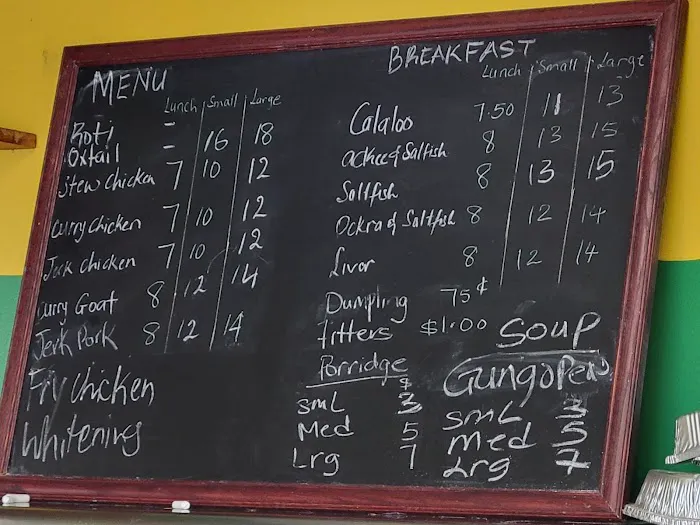 MENU
Lunch Small Large
Roti -
Oxtail - 16 18
Stew chicken 7 10 12
Curry chicken 7 10 12
Jerk chicken 7 10 12
Curry Goat 8 12 14
Jerk Pork 8 12 14
Fry Chicken
Whitening
BREAKFAST
Lunch Small Large
Calaloo 7.50 11 13
ackee & Saltfish 8 13 15
Saltfish 8 13 15
Ockra & Saltfish 8 12 14
Livor 8 12 14
Dumpling 75¢
fitters $1.00
Porridge
smL $3
Med 5
Lrg 7
Soup
Gungo Peas
smL 3
med 5
Lrg 7